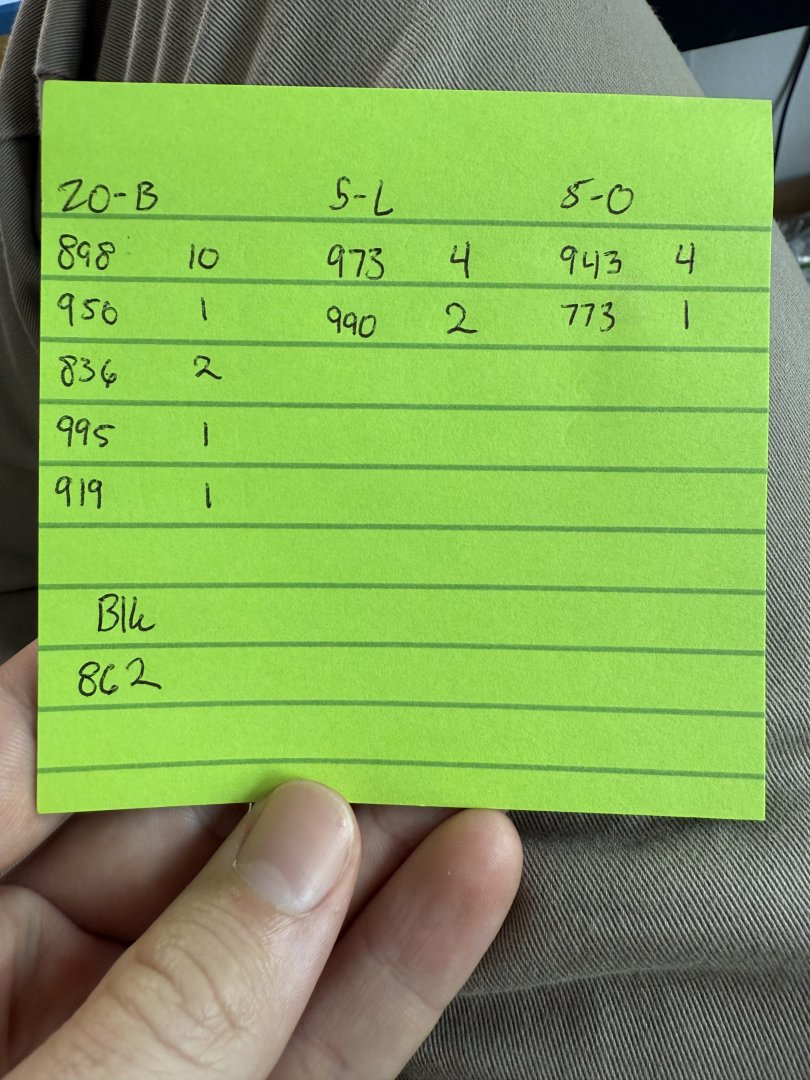 20-B 5-L 5-O
898 10 973 4 943 4
950 1 990 2 773 1
836 2
995 1
919 1
Blk
862